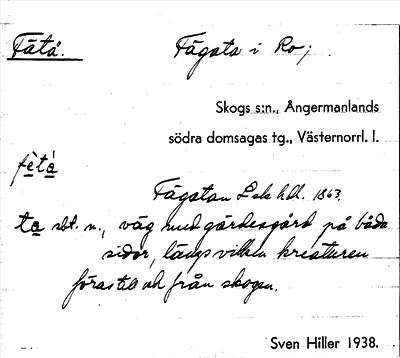 Fätå. Fägata i Ro;
Skogs s:n., Ångermanlands
södra domsagas tg., Västernorrl. l.
fètá
Fägatan Lsk hdl. 1863.
ta sbt. n., väg med gärdesgård på båda
sidor, längs vilken kreaturen
föras till och från skogen.
Sven Hiller 1938.